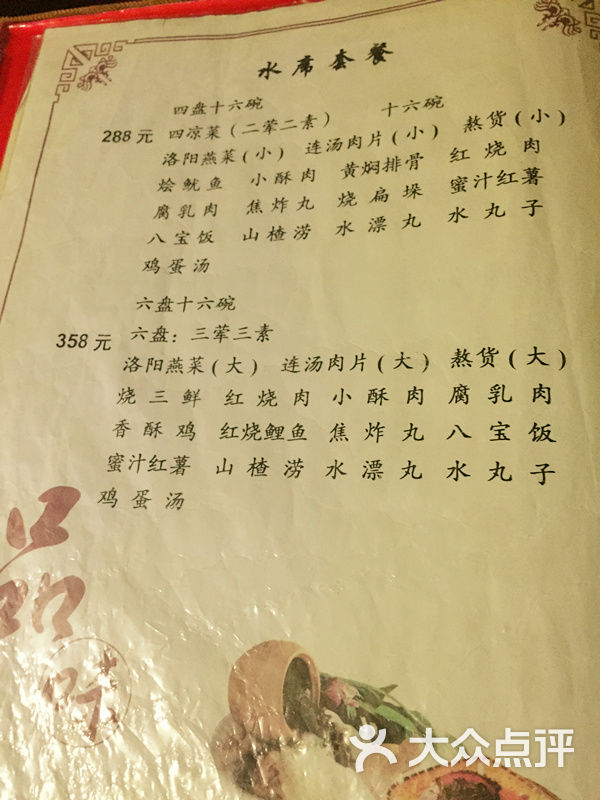 水席套餐
四盘十六碗 十六碗
288元 四凉菜（二荤二素）
洛阳燕菜(小) 连汤肉片(小) 熬货(小)
烩鱿鱼 小酥肉 黄焖排骨 红烧肉
腐乳肉 焦炸丸 烧扁垛 蜜汁红薯
八宝饭 山楂涝 水漂丸 水丸子
鸡蛋汤
六盘十六碗
358元 六盘：三荤三素
洛阳燕菜(大) 连汤肉片(大) 熬货(大)
烧三鲜 红烧肉 小酥肉 腐乳肉
香酥鸡 红烧鲤鱼 焦炸丸 八宝饭
蜜汁红薯 山楂涝 水漂丸 水丸子
鸡蛋汤
品味
大众点评